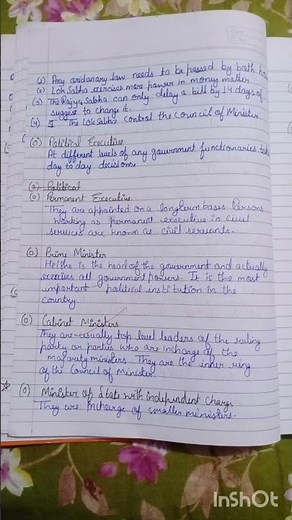 (1) Any ordinary law needs to be passed by both
(2) Lok Sabha exercises more power in money matters
(3) The Rajya Sabha can only delay a bill by 14 days or
suggest to change it.
(4) The Lok Sabha control the Council of Minister
(0) Political Executive
At different levels of any government functionaries
day to day decisions.
(0) Political
(0) Permanent Executive
They are appointed on a longterm basis Persons
working as permanent executive in civil
services are known as civil servants.
(0) Prime Minister
He/she is the head of the government and actually
exercises all government powers. It is the most
important political institution in the
country.
(0) Cabinet Ministers
They are usually top level leaders of the ruling
party or parties who are incharge of the
ministers. They are the inner ring
of the Council of Minister.
(0) Minister of State with independent Charge
They are incharge of smaller ministers.
InShOt